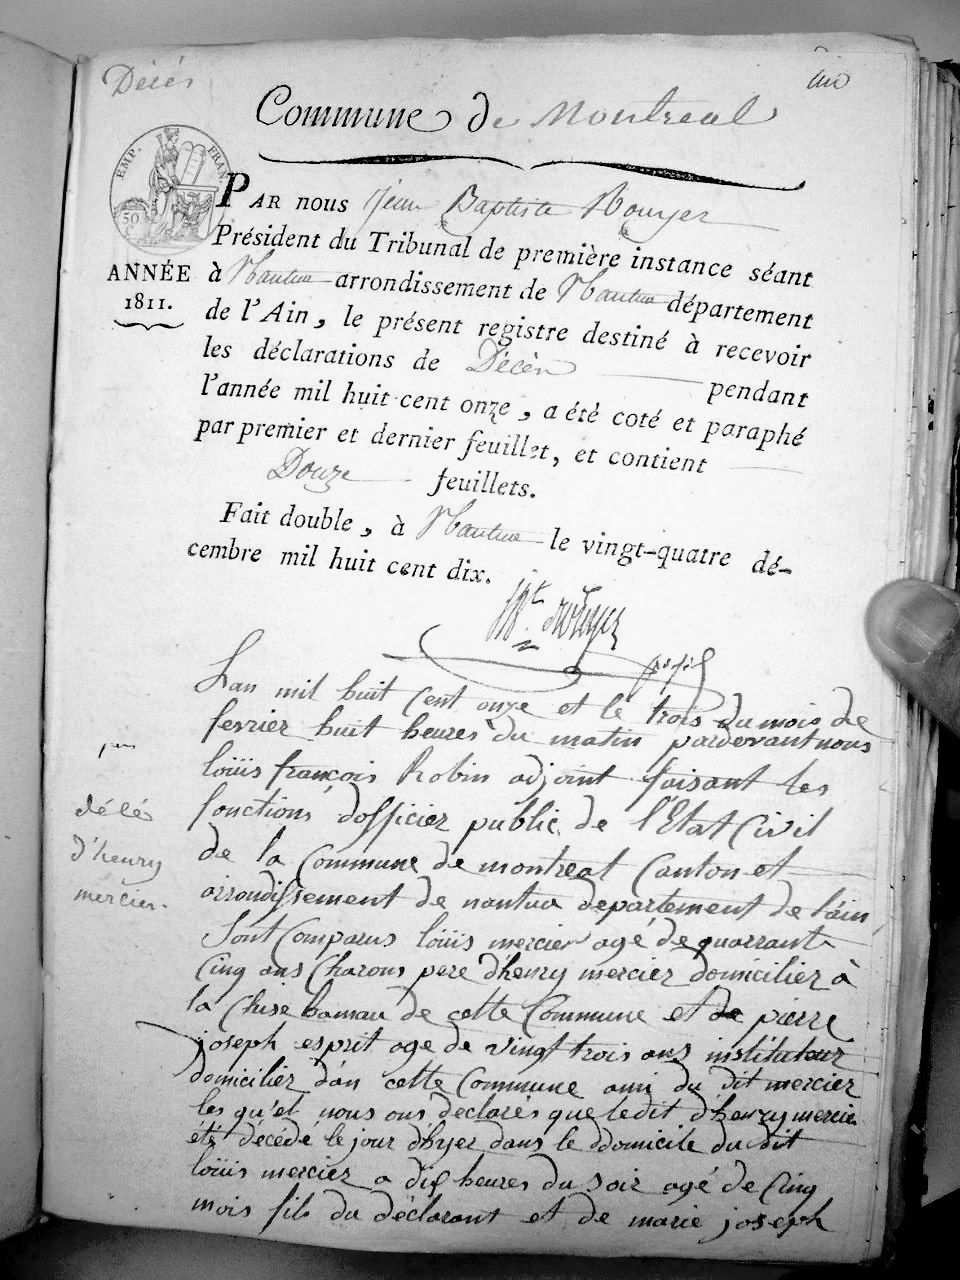 Décès
un
Commune de Montreal
EMP. FRAN.
50
PAR nous Jean Baptiste Rouyer
Président du Tribunal de première instance séant
ANNÉE
1811.
à Nantua arrondissement de Nantua département
de l'Ain, le présent registre destiné à recevoir
les déclarations de Décès pendant
l'année mil huit cent onze, a été coté et paraphé
par premier et dernier feuillet, et contient
Douze feuillets.
Fait double, à Nantua le vingt-quatre dé-
cembre mil huit cent dix.
Rouyer
Lan mil huit Cent onze et le trois du mois de
fevrier huit heures du matin pardevant nous
loüis françois Robin adjoint faisant les
fonctions dofficier public de l'Etat Civil
de la Commune de montreal Canton et
arrondissement de nantua departement de lain
Sont Comparus loüis mercier agé de quarrante
Cinq ans Charons pere d'henry mercier domicilier à
la Chise hamau de cette Commune et de pierre
joseph esprit age de vingt trois ans instituteur
domicilier dan cette Commune ami du dit mercier
les qu'el nous ons declarés que ledit d'henry mercier
éts décédé le jour d'hyer dans le ddomicile du dit
loüis mercier a dix heures du soir agé de Cinq
mois fils du déclarant et de marie joseph
décé
d'henry
mercier.